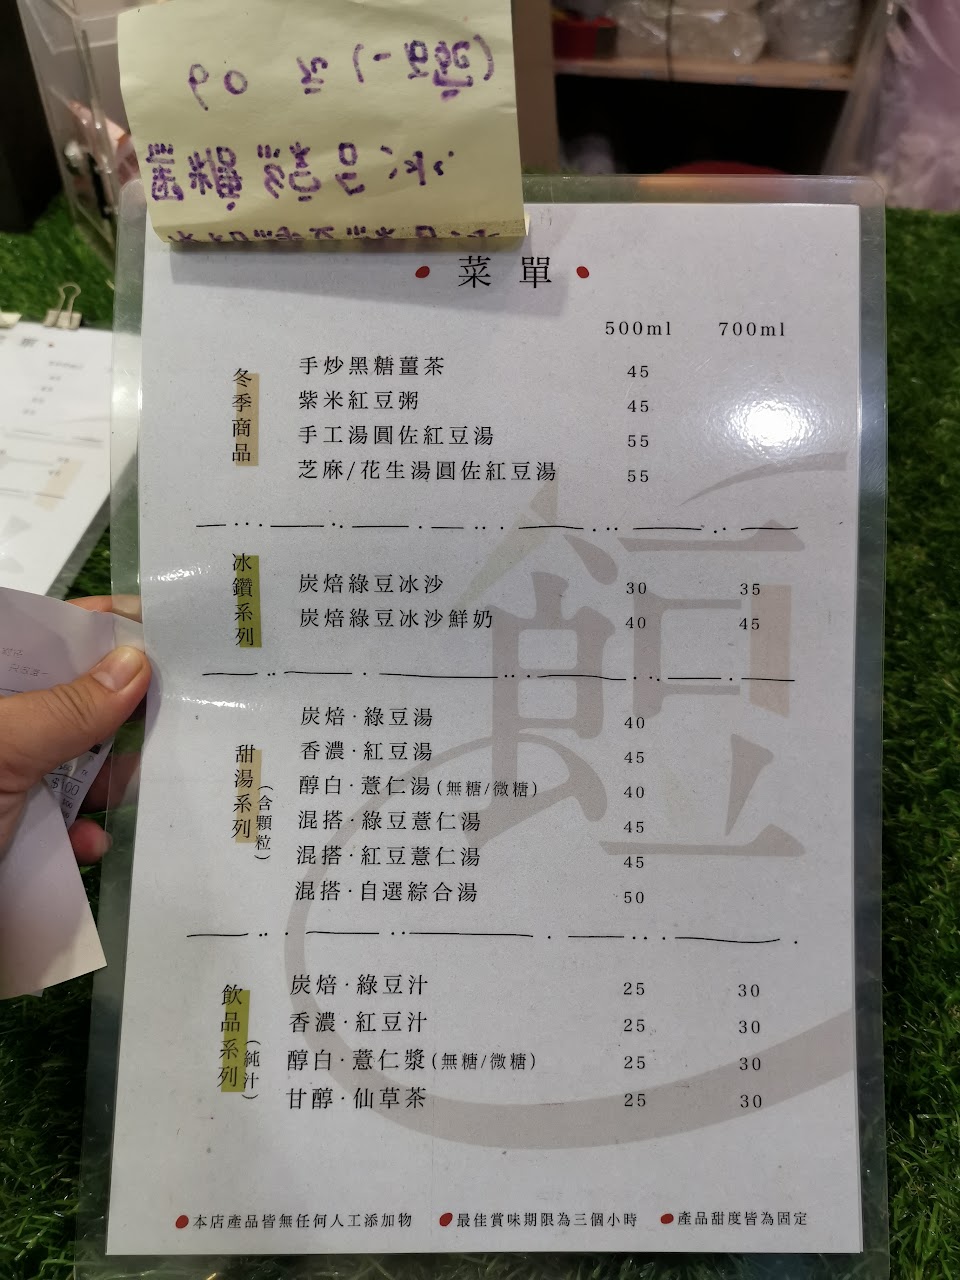 菜單
500ml 700ml
冬季商品
手炒黑糖薑茶 45
紫米紅豆粥 45
手工湯圓佐紅豆湯 55
芝麻/花生湯圓佐紅豆湯 55
冰鑽系列
炭焙綠豆冰沙 30 35
炭焙綠豆冰沙鮮奶 40 45
甜湯系列
(含顆粒)
炭焙·綠豆湯 40
香濃·紅豆湯 45
醇白·薏仁湯(無糖/微糖) 40
混搭·綠豆薏仁湯 45
混搭·紅豆薏仁湯 45
混搭·自選綜合湯 50
飲品系列
(純汁)
炭焙·綠豆汁 25 30
香濃·紅豆汁 25 30
醇白·薏仁漿(無糖/微糖) 25 30
甘醇·仙草茶 25 30
本店產品皆無任何人工添加物 最佳賞味期限為三個小時 產品甜度皆為固定
$100